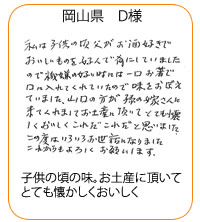 岡山県　D様
私は子供の頃父がお酒好きで
おいしいものを好んで肴にしていました
ので機嫌の好い時には一口お箸で
口に入れてくれていたので味をおぼえ
ていました。山口の方が孫の嫁さんに
来てくれましてお土産に頂いてとても懐し
くおいしくこれだ“これだ”と思いました
この度はいろいろお世話になりました
これからもよろしくお願いします。
子供の頃の味。お土産に頂いて
とても懐かしくおいしく